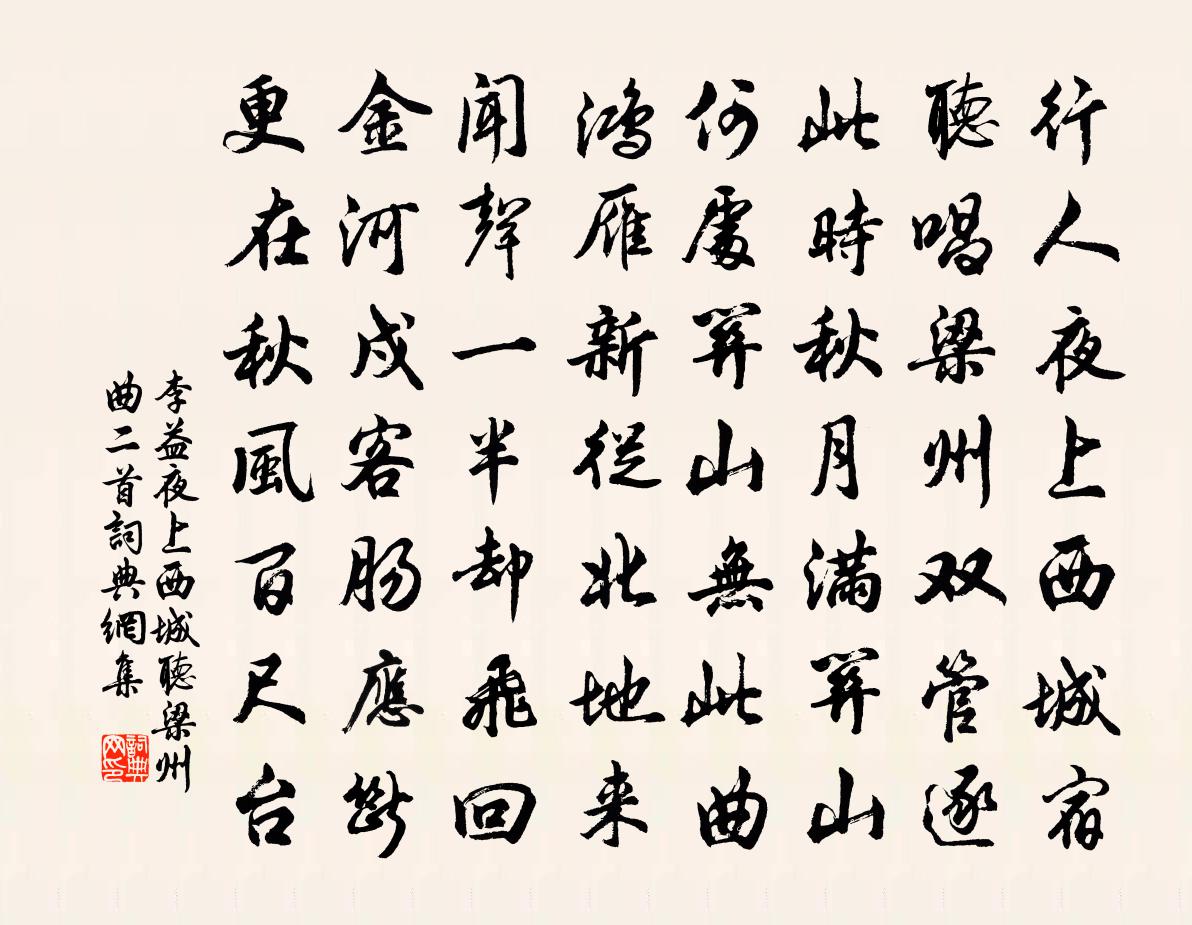 行人夜上西城宿
聽唱梁州双管逐
此時秋月滿關山
何處關山無此曲
鴻雁新從北地来
聞聲一半却飛回
金河戍客腸應斷
更在秋風百尺台
李益夜上西城聽梁州
曲二首詞典網集
詞典
网印